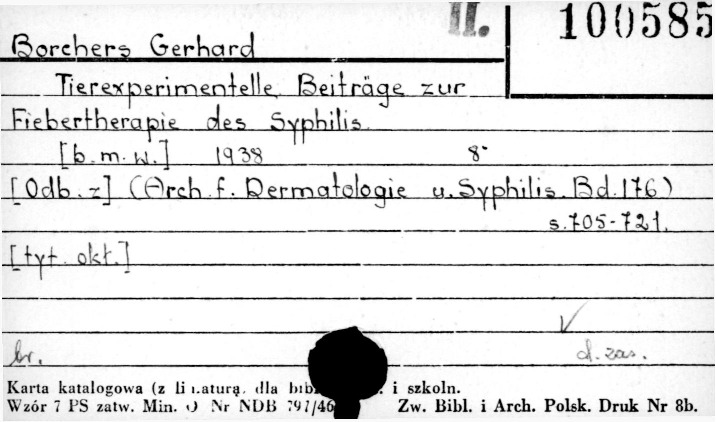 II. 100585
Borchers Gerhard
Tierexperimentelle Beiträge zur
Fiebertherapie des Syphilis.
[b.m.w.] 1938 8°
[Odb. z] (Arch. f. Dermatologie u. Syphilis. Bd. 176)
s. 705-721.
[tyt. okł.]
br. d. zas.
Karta katalogowa (z li aturą, dla bib . i szkoln.
Wzór 7 PS zatw. Min. O Nr NDB 797/46 Zw. Bibl. i Arch. Polsk. Druk Nr 8b.